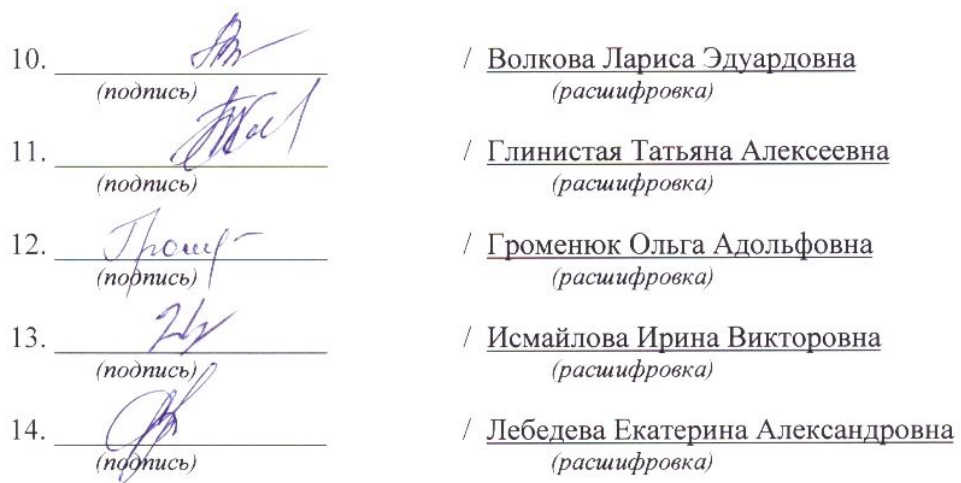 10. / Волкова Лариса Эдуардовна
(подпись) (расшифровка)
11. / Глинистая Татьяна Алексеевна
(подпись) (расшифровка)
12. / Громенюк Ольга Адольфовна
(подпись) (расшифровка)
13. / Исмайлова Ирина Викторовна
(подпись) (расшифровка)
14. / Лебедева Екатерина Александровна
(подпись) (расшифровка)